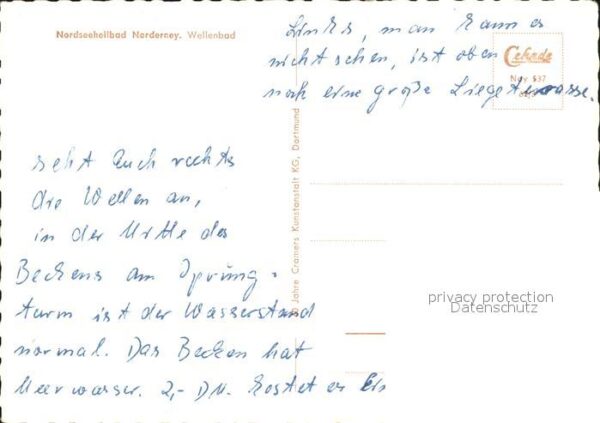 Nordseeheilbad Norderney. Wellenbad
Links, man kann es
nicht sehen, ist oben
noch eine große Liegeterrasse.
Cekade
Ney 537
50 Jahre Cramers Kunstanstalt KG, Dortmund
seht Euch rechts
die Wellen an,
in der Mitte des
Beckens am Sprung-
turm ist der Wasserstand
normal. Das Becken hat
Meerwasser. 2,- DM. kostet er
privacy protection
Datenschutz